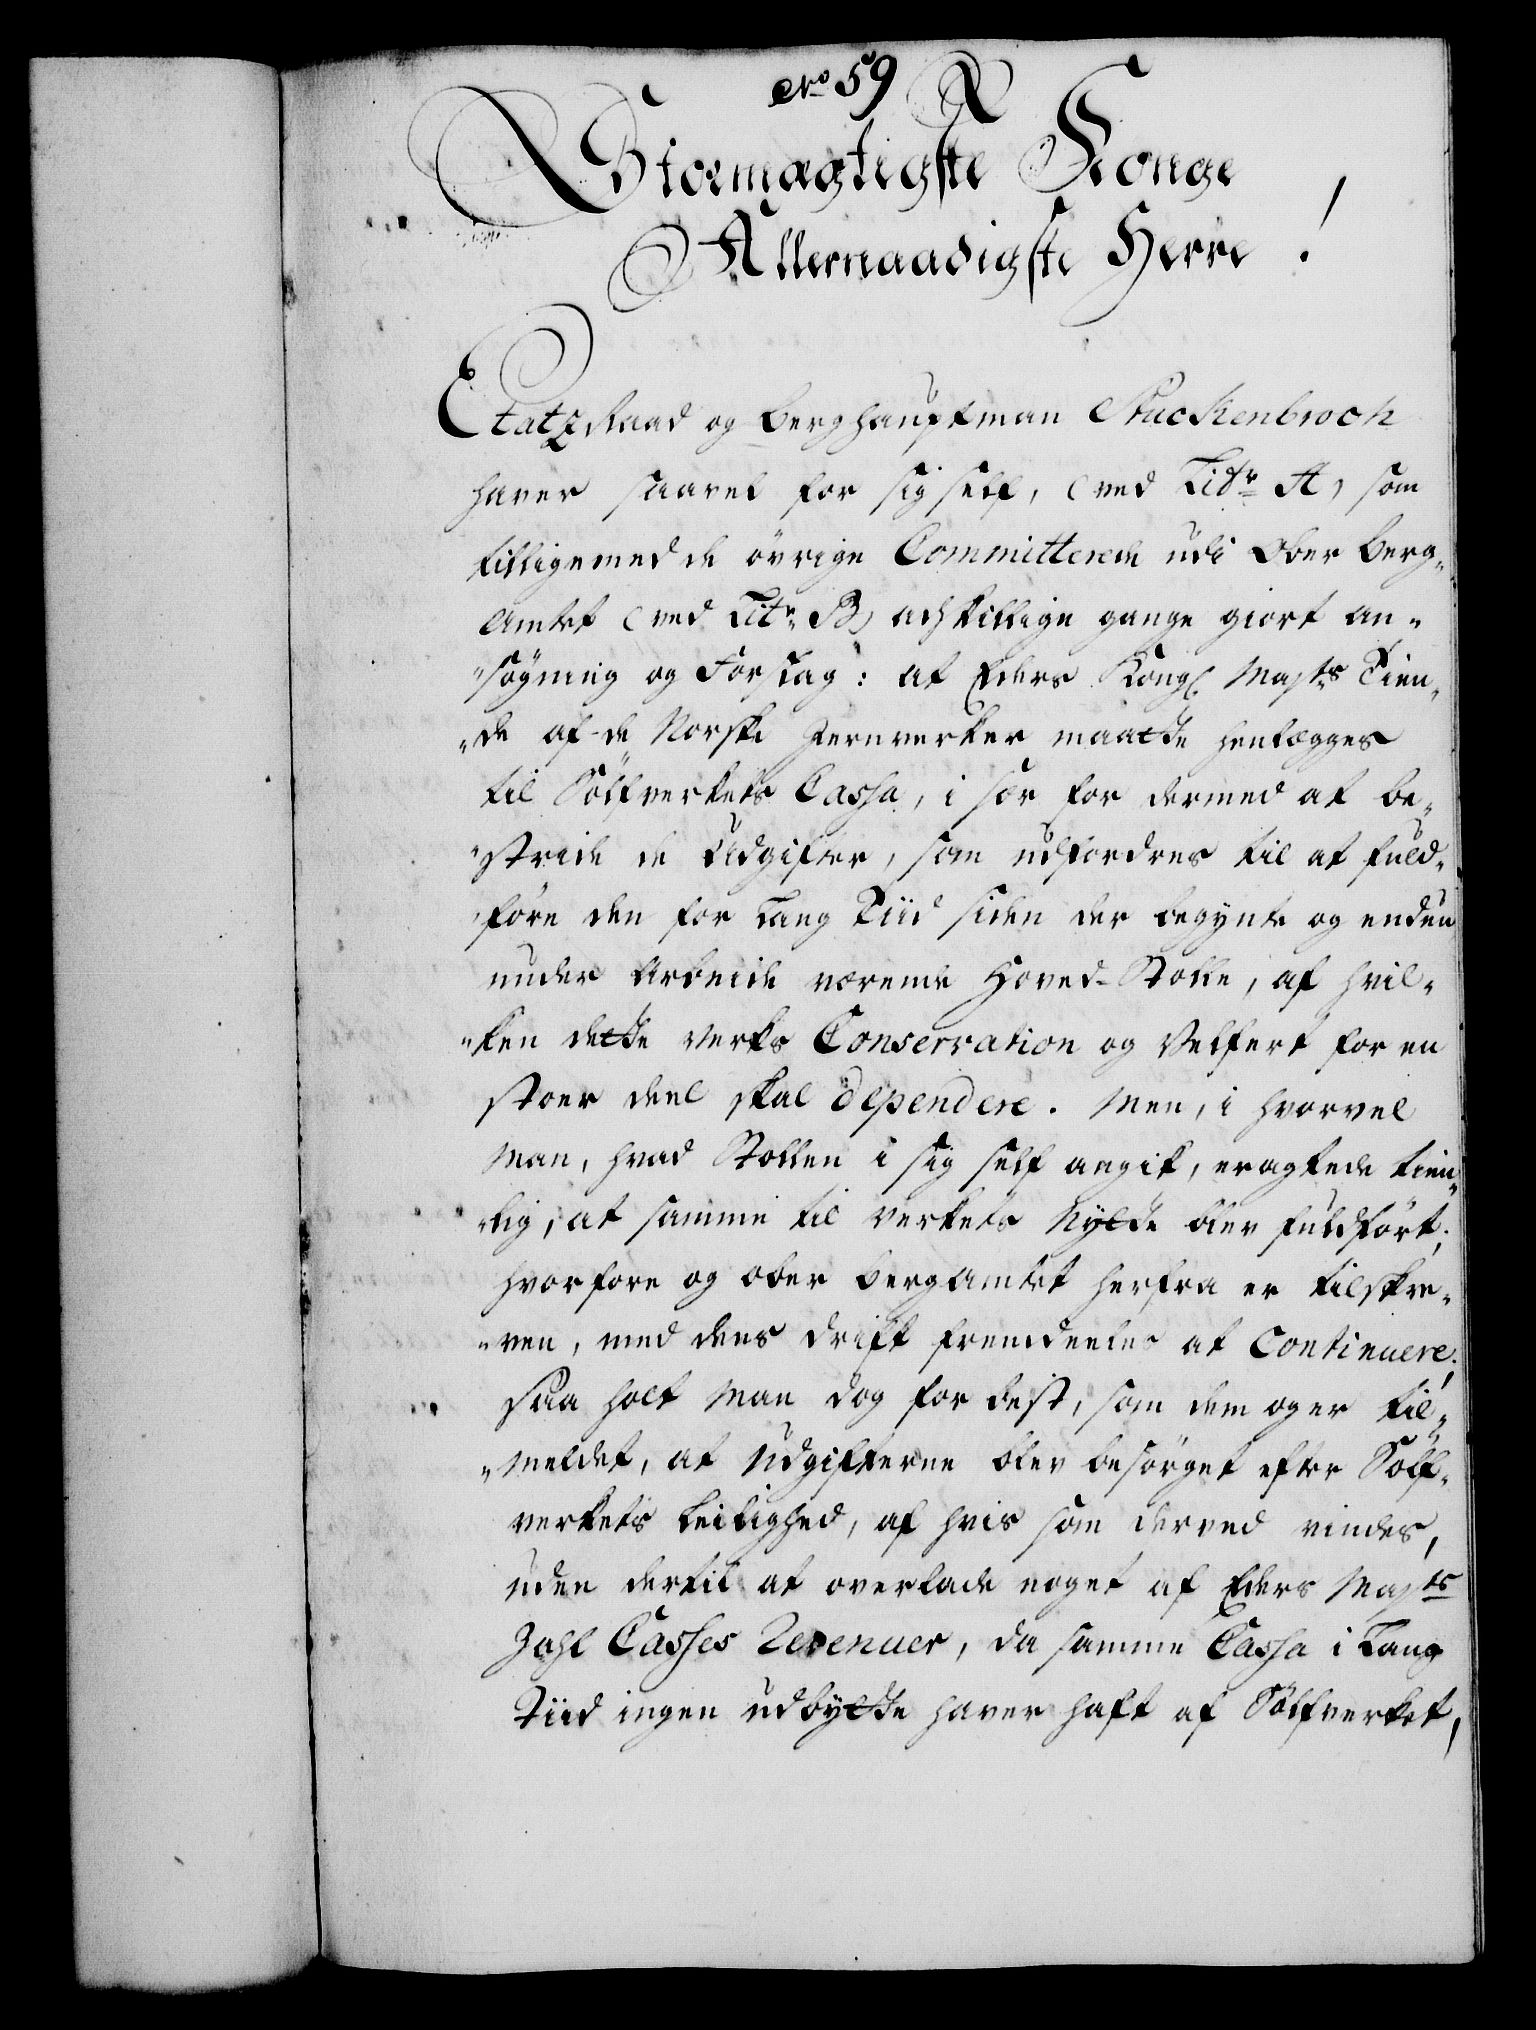 No 59
Stormægtigste Konge
Allernaadigste Herre!
EtatzRaad og Berghauptman Stuckenbrock
haver saavel for sig self, (ved Litr: A) som
tilligemed de övrige Committerede udi Ober Berg-
Amtet (ved Litr: B) adskillige gange giort an-
"sögning og Forslag: at Eders Kongl Maÿts Tien-
"de af de Norske Jernverker maatte henlægges
til Sölfverkets Cassa, i sær for dermed at be-
"stride de Udgifter, som udfordres til at fuld-
"före den for lang Tiid siden der begynte og endnu
under Arbeide værende Hoved-Stolle, af hvil-
"ken dette Verks Conservation og Velfert for en
stoer deel skal dependere. Men, i hvorvel
Man, hvad Stollen i sig self angik, eragtede tien-
"lig, at samme til Verkets Nÿtte blev fuldfört,
hvorfore og Ober Bergamtet herfra er tilskre-
"ven, med dens drift fremdeeles at Continuere;
saa holt Man dog for best, som dem og er til-
"meldet, at Udgifterne blev besörget efter Sölf-
verkets Leilighed, af hvis som derved vindes,
uden dertil at overlade noget af Eders Maÿts
Zahl Casses Revenuer, da samme Cassa i Lang
Tiid ingen udbÿtte haver haft af Sölfverket,